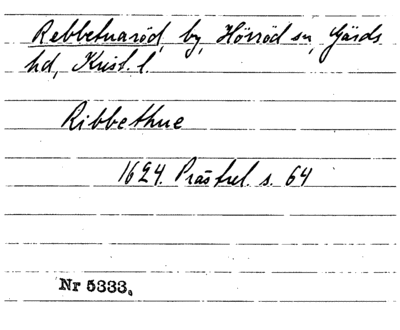 Rebbetuaröd, by, Hörröd sn, Gärds
hd, Krist. l.
Ribbethue
1624. Prästrel. s. 64
Nr 5333.